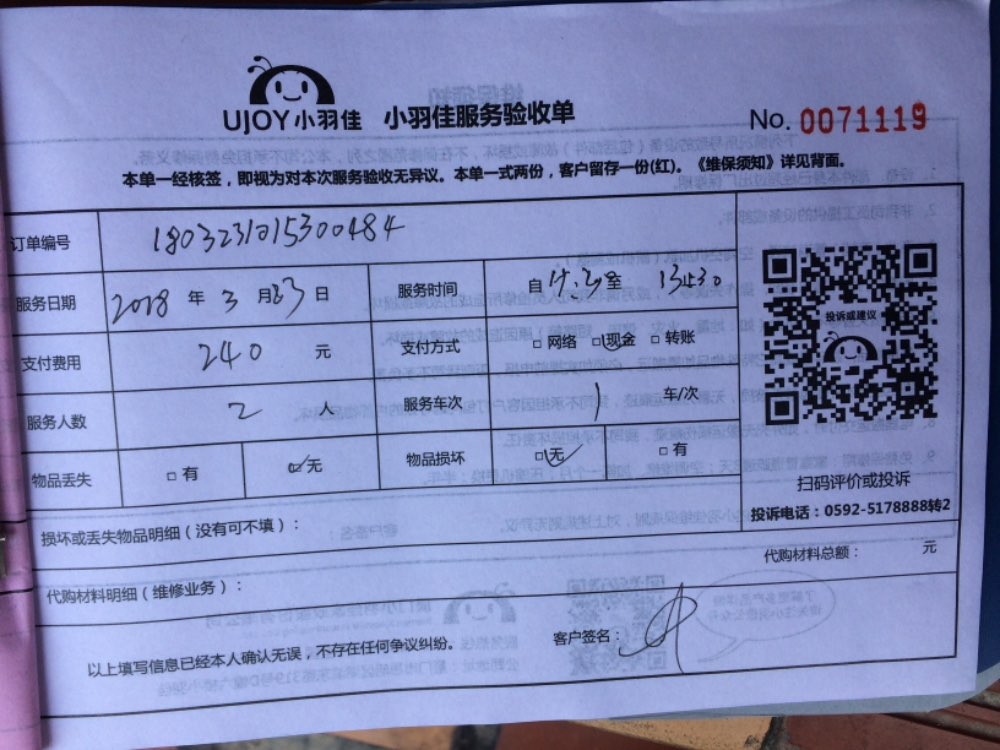 UJOY小羽佳 小羽佳服务验收单 No. 0071119
本单一经核签，即视为对本次服务验收无异议。本单一式两份，客户留存一份(红)。《维保须知》详见背面。
订单编号 1803231015300484
服务日期 2018 年 3 月23 日 服务时间 自 至 13:30
支付费用 240 元 支付方式 □ 网络 □ 现金 □ 转账
服务人数 2 人 服务车次 1 车/次
物品丢失 □ 有 □ 无 物品损坏 □ 无 □ 有
投诉或建议
扫码评价或投诉
投诉电话：0592-5178888转2
损坏或丢失物品明细（没有可不填）：
代购材料总额： 元
代购材料明细（维修业务）：
客户签名：
以上填写信息已经本人确认无误，不存在任何争议纠纷。